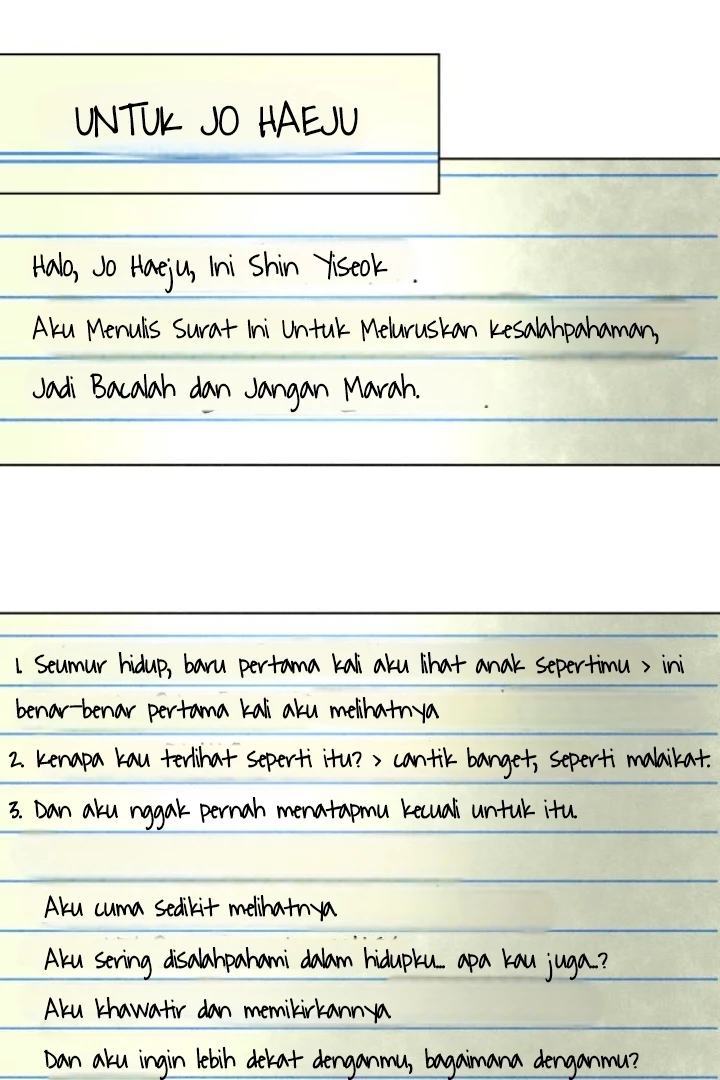 UNTUK JO HAEJU
Halo, Jo Haeju, Ini Shin Yiseok
Aku Menulis Surat Ini Untuk Meluruskan Kesalahpahaman,
Jadi Bacalah dan Jangan Marah.
1. Seumur hidup, baru pertama kali aku lihat anak sepertimu > ini
benar-benar pertama kali aku melihatnya
2. Kenapa kau terlihat seperti itu? > cantik banget, seperti malaikat.
3. Dan aku nggak pernah menatapmu kecuali untuk itu.
Aku cuma sedikit melihatnya
Aku sering disalahpahami dalam hidupku... apa kau juga..?
Aku khawatir dan memikirkannya
Dan aku ingin lebih dekat denganmu, bagaimana denganmu?